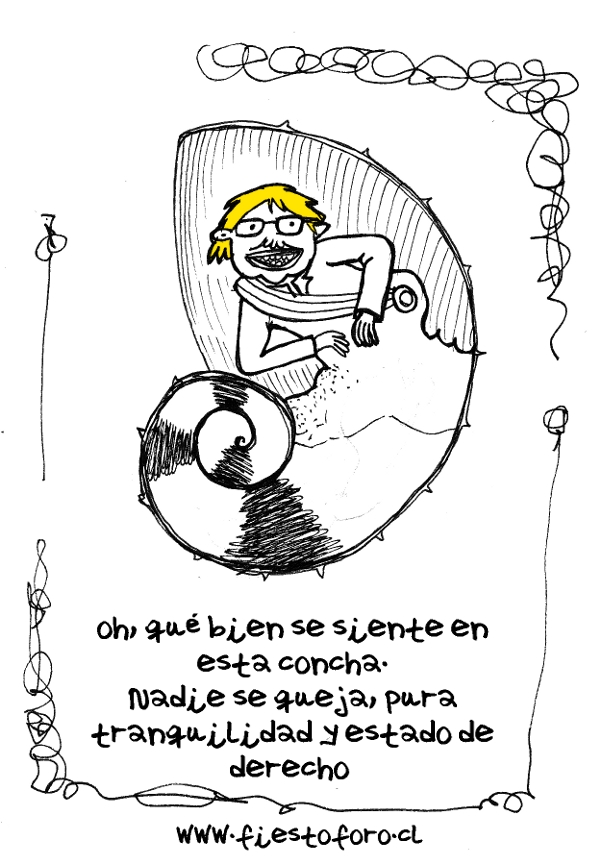 Oh, qué bien se siente en
esta concha.
Nadie se queja, pura
tranquilidad y estado de
derecho
www.fiestoforo.cl